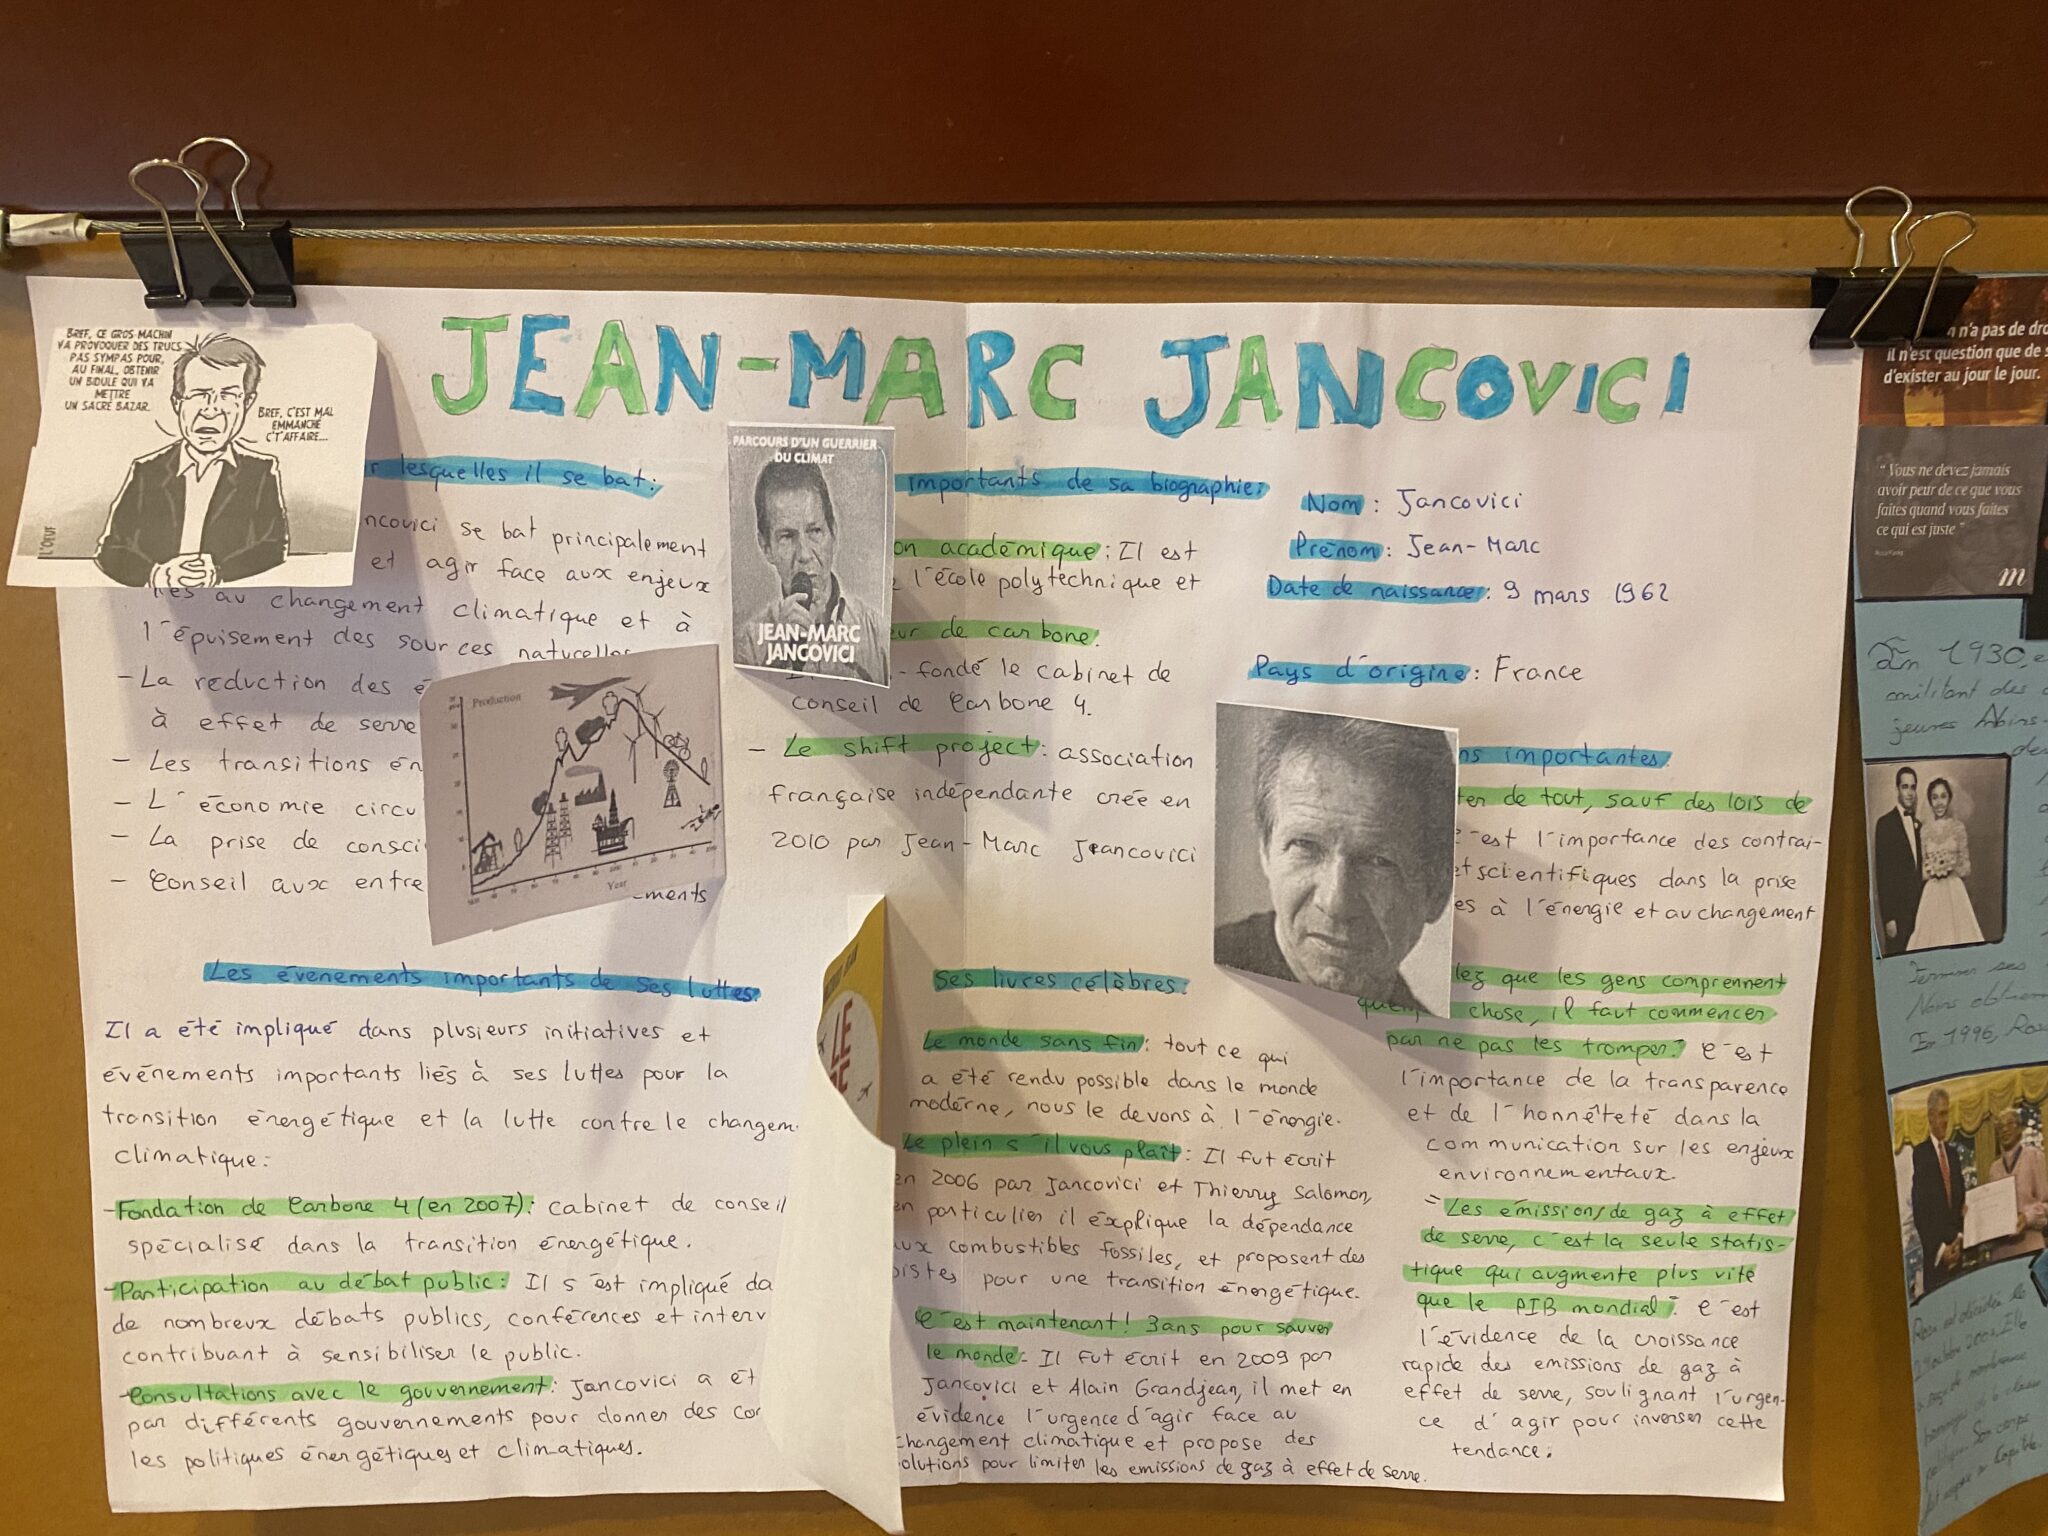 JEAN-MARC JANCOVICI
BREF, CE GROS MACHIN
VA PROVOQUER DES TRUCS
PAS SYMPAS POUR,
AU FINAL, OBTENIR
UN BIDULE QUI VA
METTRE
UN SACRÉ BAZAR.
BREF, C'EST MAL
EMMANCHÉ
C'T'AFFAIRE...
L'OEUF
lesquelles il se bat:
se bat principalement
et agir face aux enjeux
liés au changement climatique et à
l'épuisement des sources naturelles
-La réduction des
à effet de serre
- Les transitions én
- L'économie circu
- La prise de consci
- Conseil aux entre
ements
Production
Year
Les évenements importants de ses luttes.
Il a été impliqué dans plusieurs initiatives et
événements importants liés à ses luttes pour la
transition énergétique et la lutte contre le changem
climatique:
-Fondation de Carbone 4 (en 2007): cabinet de conseil
spécialisé dans la transition énergétique.
-Participation au débat public: Il s'est impliqué da
de nombreux débats publics, conférences et interv
contribuant à sensibiliser le public.
-Consultations avec le gouvernement: Jancovici a ét
par différents gouvernements pour donner des con
les politiques énergétiques et climatiques.
PARCOURS D'UN GUERRIER
DU CLIMAT
JEAN-MARC
JANCOVICI
importants de sa biographie:
on académique: Il est
l'école polytechnique et
eur de carbone.
-fondé le cabinet de
conseil de Carbone 4.
- Le shift project: association
française indépendante crée en
2010 par Jean-Marc Jeancovici
LE
Ses livres célèbres:
Le monde sans fin: tout ce qui
a été rendu possible dans le monde
moderne, nous le devons à l'énergie.
Le plein s'il vous plaît: Il fut écrit
en 2006 par Jancovici et Thierry Salomon,
en particulier il explique la dépendance
aux combustibles fossiles, et proposent des
pistes pour une transition énergétique.
C'est maintenant! 3ans pour sauver
le monde: Il fut écrit en 2009 par
Jancovici et Alain Grandjean, il met en
évidence l'urgence d'agir face au
changement climatique et propose des
solutions pour limiter les emissions de gaz à effet de serre.
Nom: Jancovici
Prénom: Jean-Marc
Date de naissance: 9 mars 1962
Pays d'origine: France
ns importantes.
ter de tout, sauf des lois de
C'est l'importance des contrai-
et scientifiques dans la prise
es à l'énergie et au changement
lez que les gens comprennent
quelq chose, il faut commencer
par ne pas les tromper." C'est
l'importance de la transparence
et de l'honnêteté dans la
communication sur les enjeux
environnementaux.
"Les émissions de gaz à effet
de serre, c'est la seule statis-
tique qui augmente plus vite
que le PIB mondial". C'est
l'évidence de la croissance
rapide des emissions de gaz à
effet de serre, soulignant l'urgen-
ce d'agir pour inverser cette
tendance.
n n'a pas de dro
il n'est question que de s
d'exister au jour le jour.
"Vous ne devez jamais
avoir peur de ce que vous
faites quand vous faites
ce qui est juste"
Rosa Parks
m
En 1930, e
militant des
jeunes Noirs
de
Terminer ses
Noirs obtien
En 1996, Ros